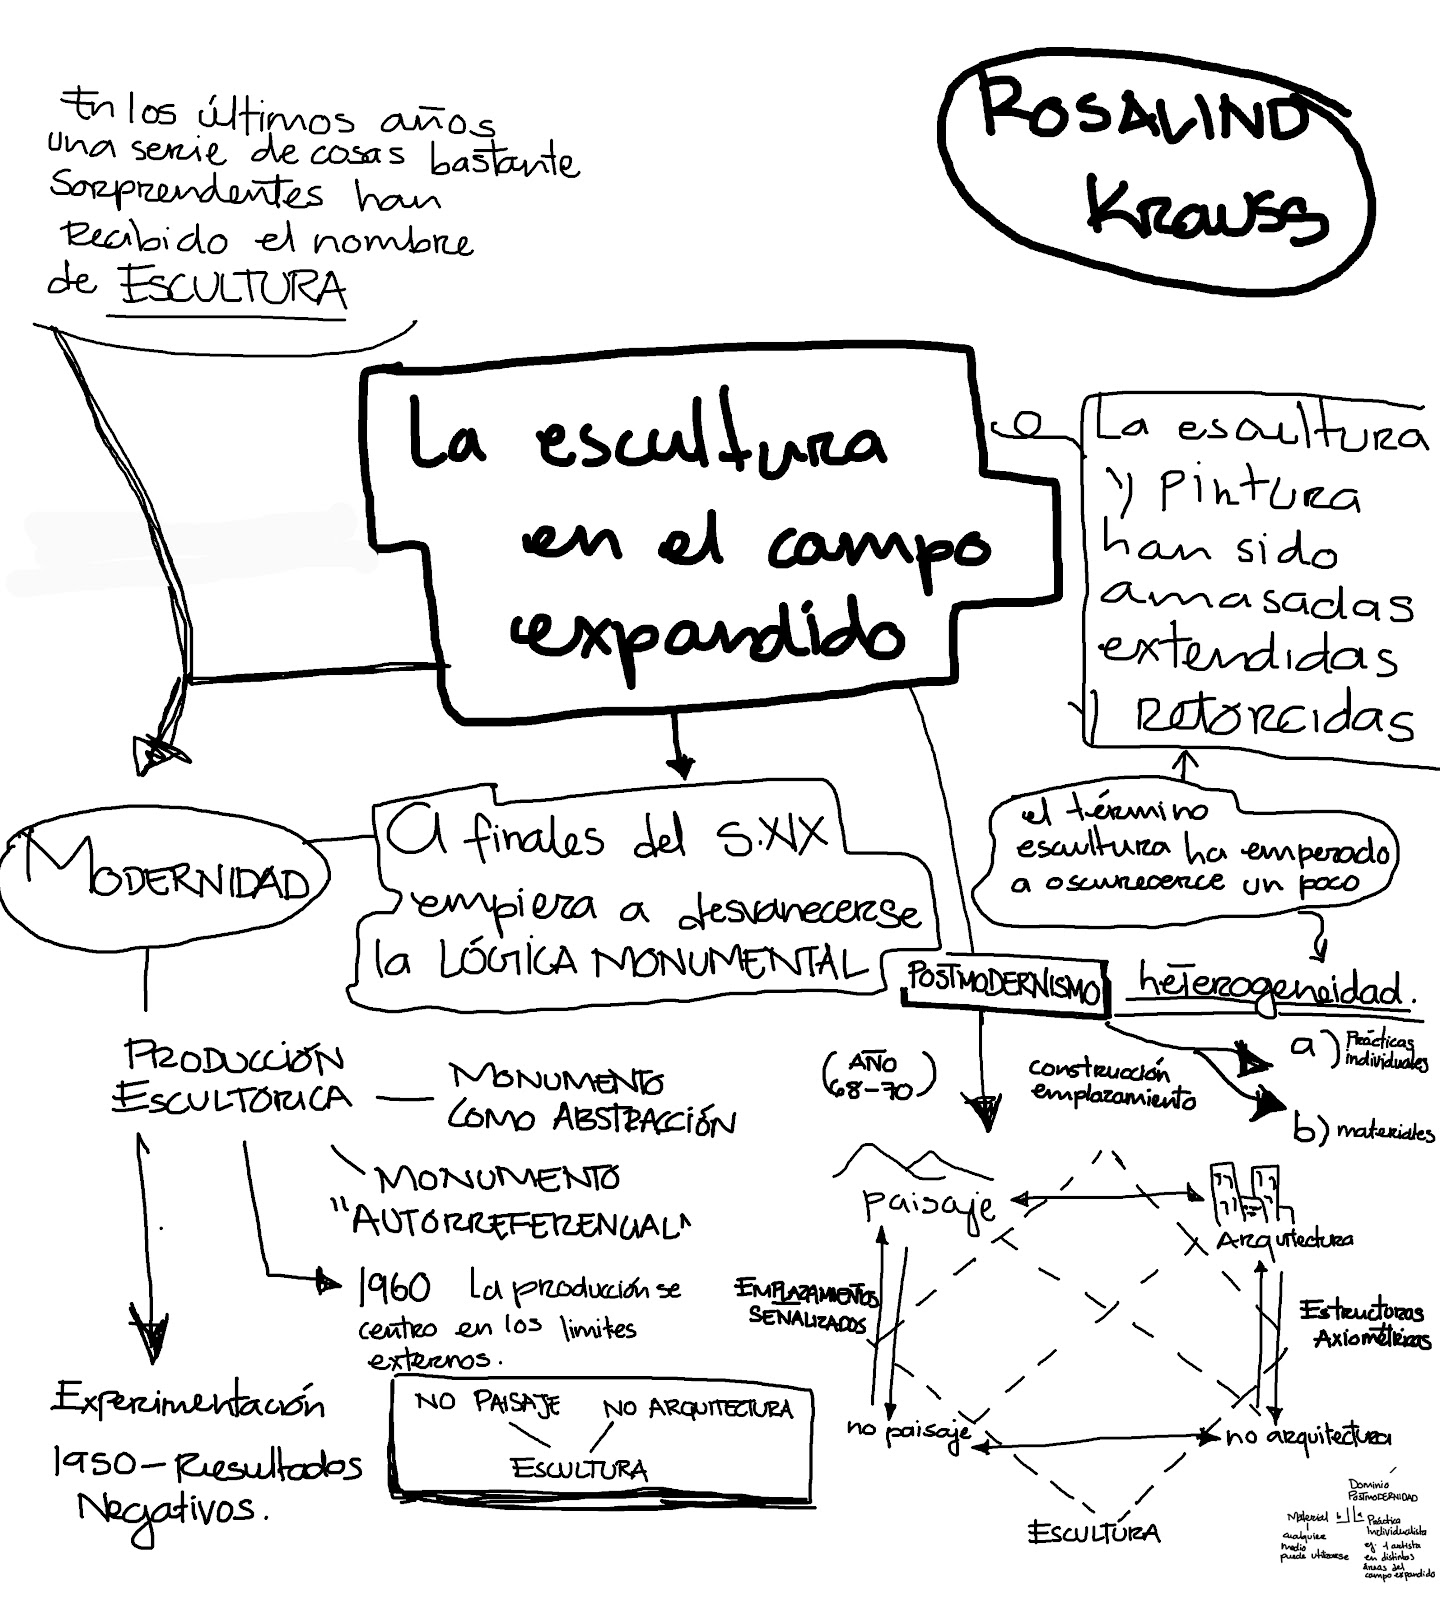 En los últimos años
una serie de cosas bastante
Sorprendentes han
recibido el nombre
de ESCULTURA
ROSALIND
KRAUSS
La escultura
en el campo
expandido
La escultura
y pintura
han sido
amasadas
extendidas
y retorcidas
el término
escultura ha emperado
a oscurecerce un poco
MODERNIDAD
A finales del S.XIX
empiera a desvanecerse
la LÓGICA MONUMENTAL
POSTMODERNISMO
heterogeneidad.
a) Prácticas
individuales
b) materiales
PRODUCCIÓN
ESCULTÓRICA
MONUMENTO
COMO ABSTRACCIÓN
MONUMENTO
"AUTORREFERENCIAL"
1960 La producción se
centro en los limites
externos.
NO PAISAJE NO ARQUITECTURA
ESCULTURA
Experimentación
1950 - Resultados
Negativos.
(AÑO
68-70)
construcción
emplazamiento
paisaje
Arquitectura
EMPLAZAMIENTOS
SEÑALIZADOS
Estructuras
Axiométricas
no paisaje
no arquitectura
ESCULTURA
Dominio
POSTMODERNIDAD
Material b
cualquier
medio
puede utilizarse
a Práctica
Individualista
ej. 1 artista
en distintas
áreas del
campo expandido